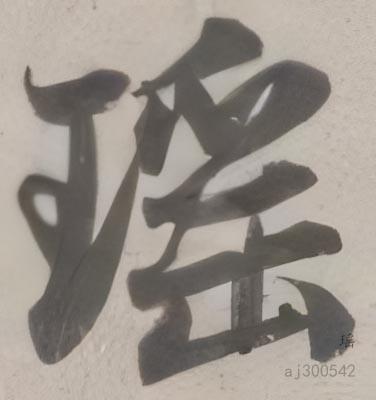 瑶
瑶
aj300542